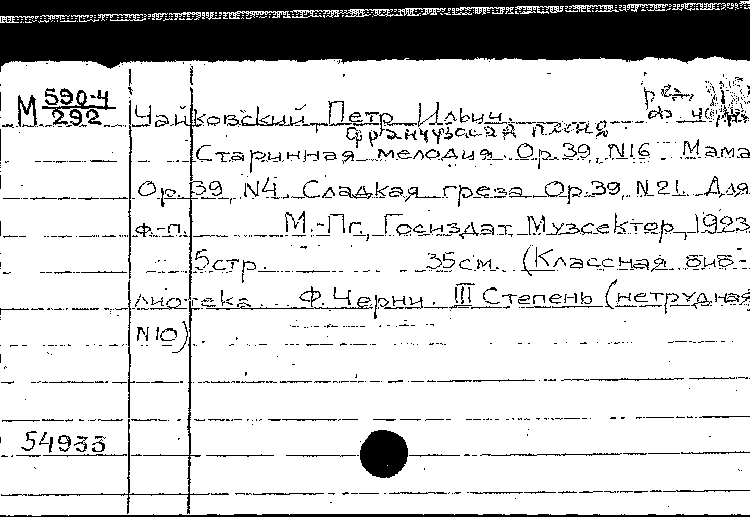 М 590-4
292
Чайковский, Петр Ильич.
французская песня
Старинная мелодия. Op. 39, N16. Мама
Op. 39, N4. Сладкая греза Op. 39, N21. Для
ф.-п. М.-Пг, Госиздат Музсектор, 1923
5 стр. 35 см. (Классная биб-
лиотека Ф. Черни. III Степень (нетрудная
N10)
54933